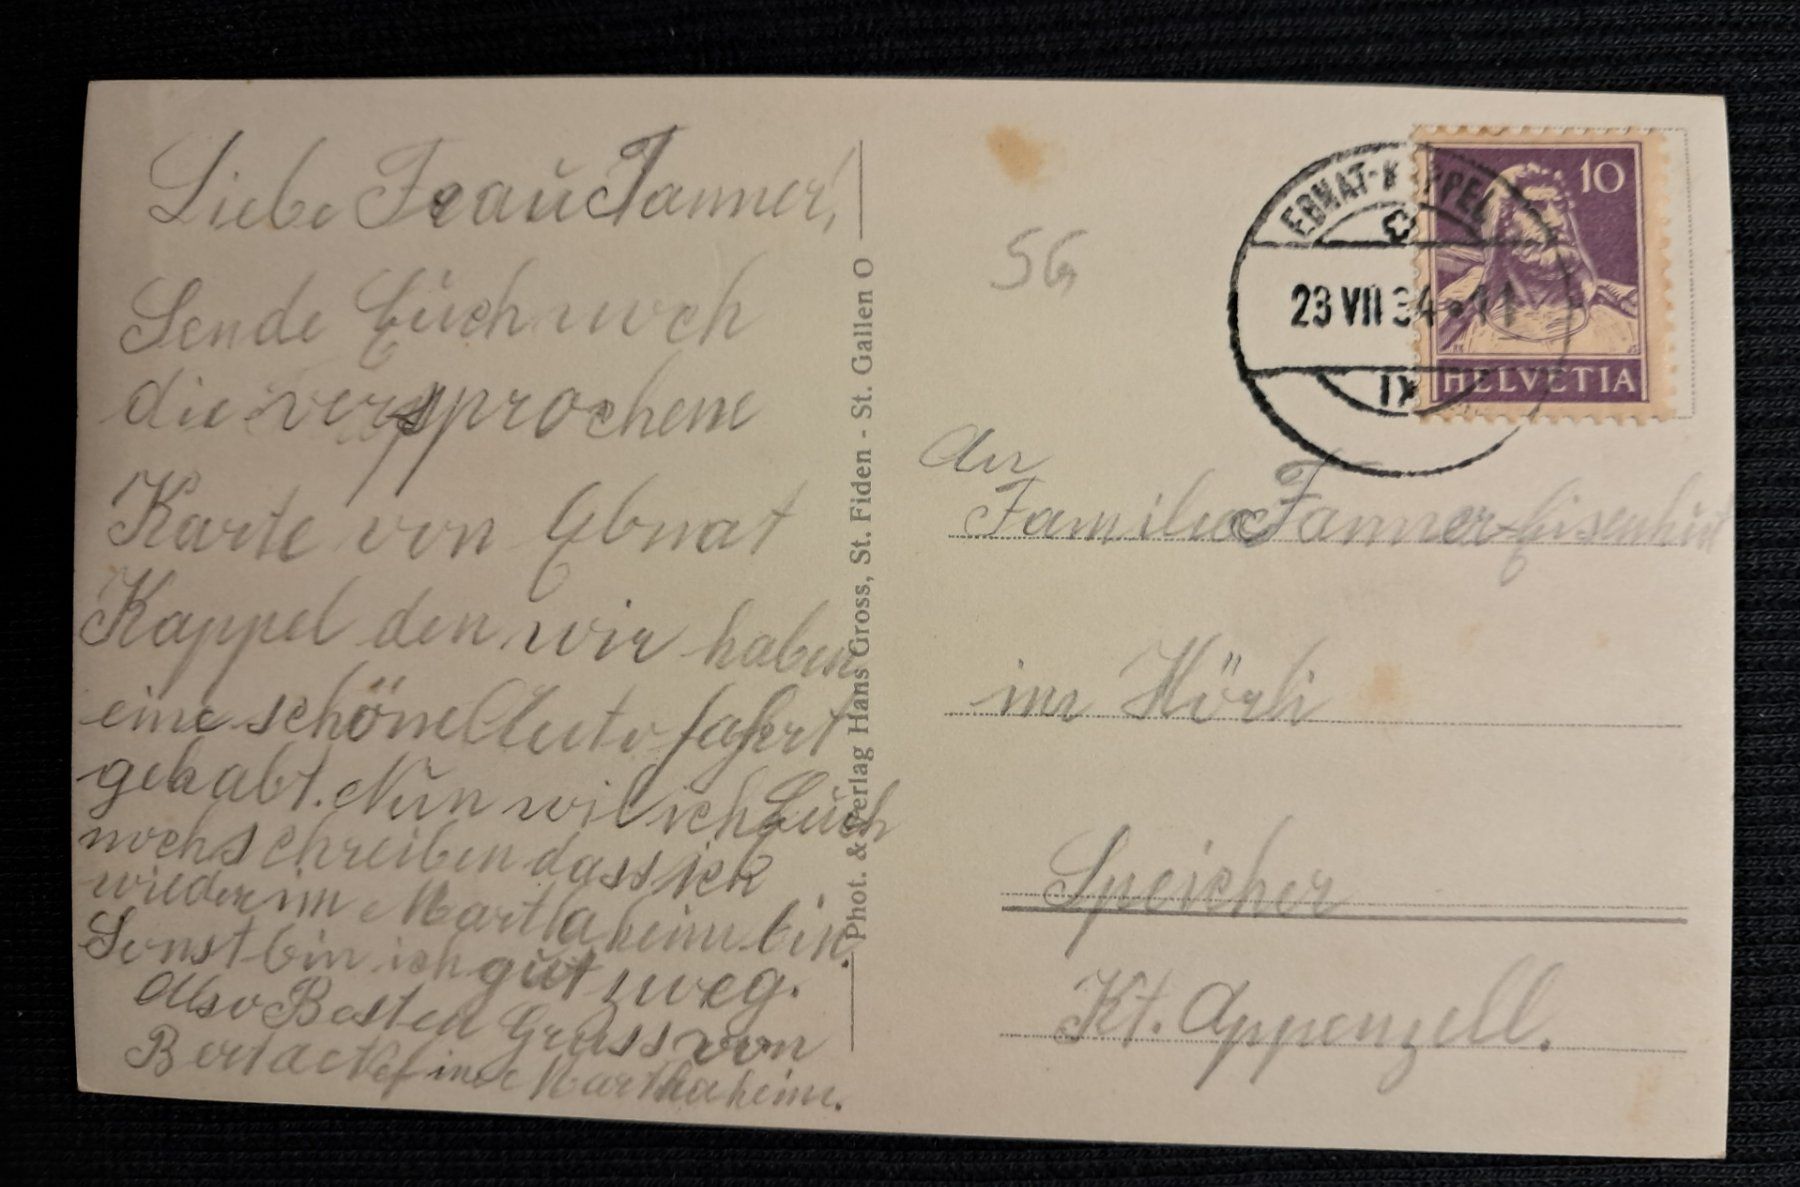 Liebe Frau Tanner!
Sende Eüch noch
die versprochene
Karte von Ebnat
Kappel den wir haben
eine schöne Auto fahrt
gehabt. Nun wil ich Eüch
noch schreiben dass ich
wieder im Martha heim bin.
Sonst bin ich güt zweg.
Also Besten Gruss von
Berta im Marthaheim.
Phot. & Verlag Hans Gross, St. Fiden - St. Gallen O
SG
EBNAT-KAPPEL
23 VII 34 - 11
IX
10
HELVETIA
An
Familie Tanner-Eisenhut
im Hörli
Speicher
Kt. Appenzell.